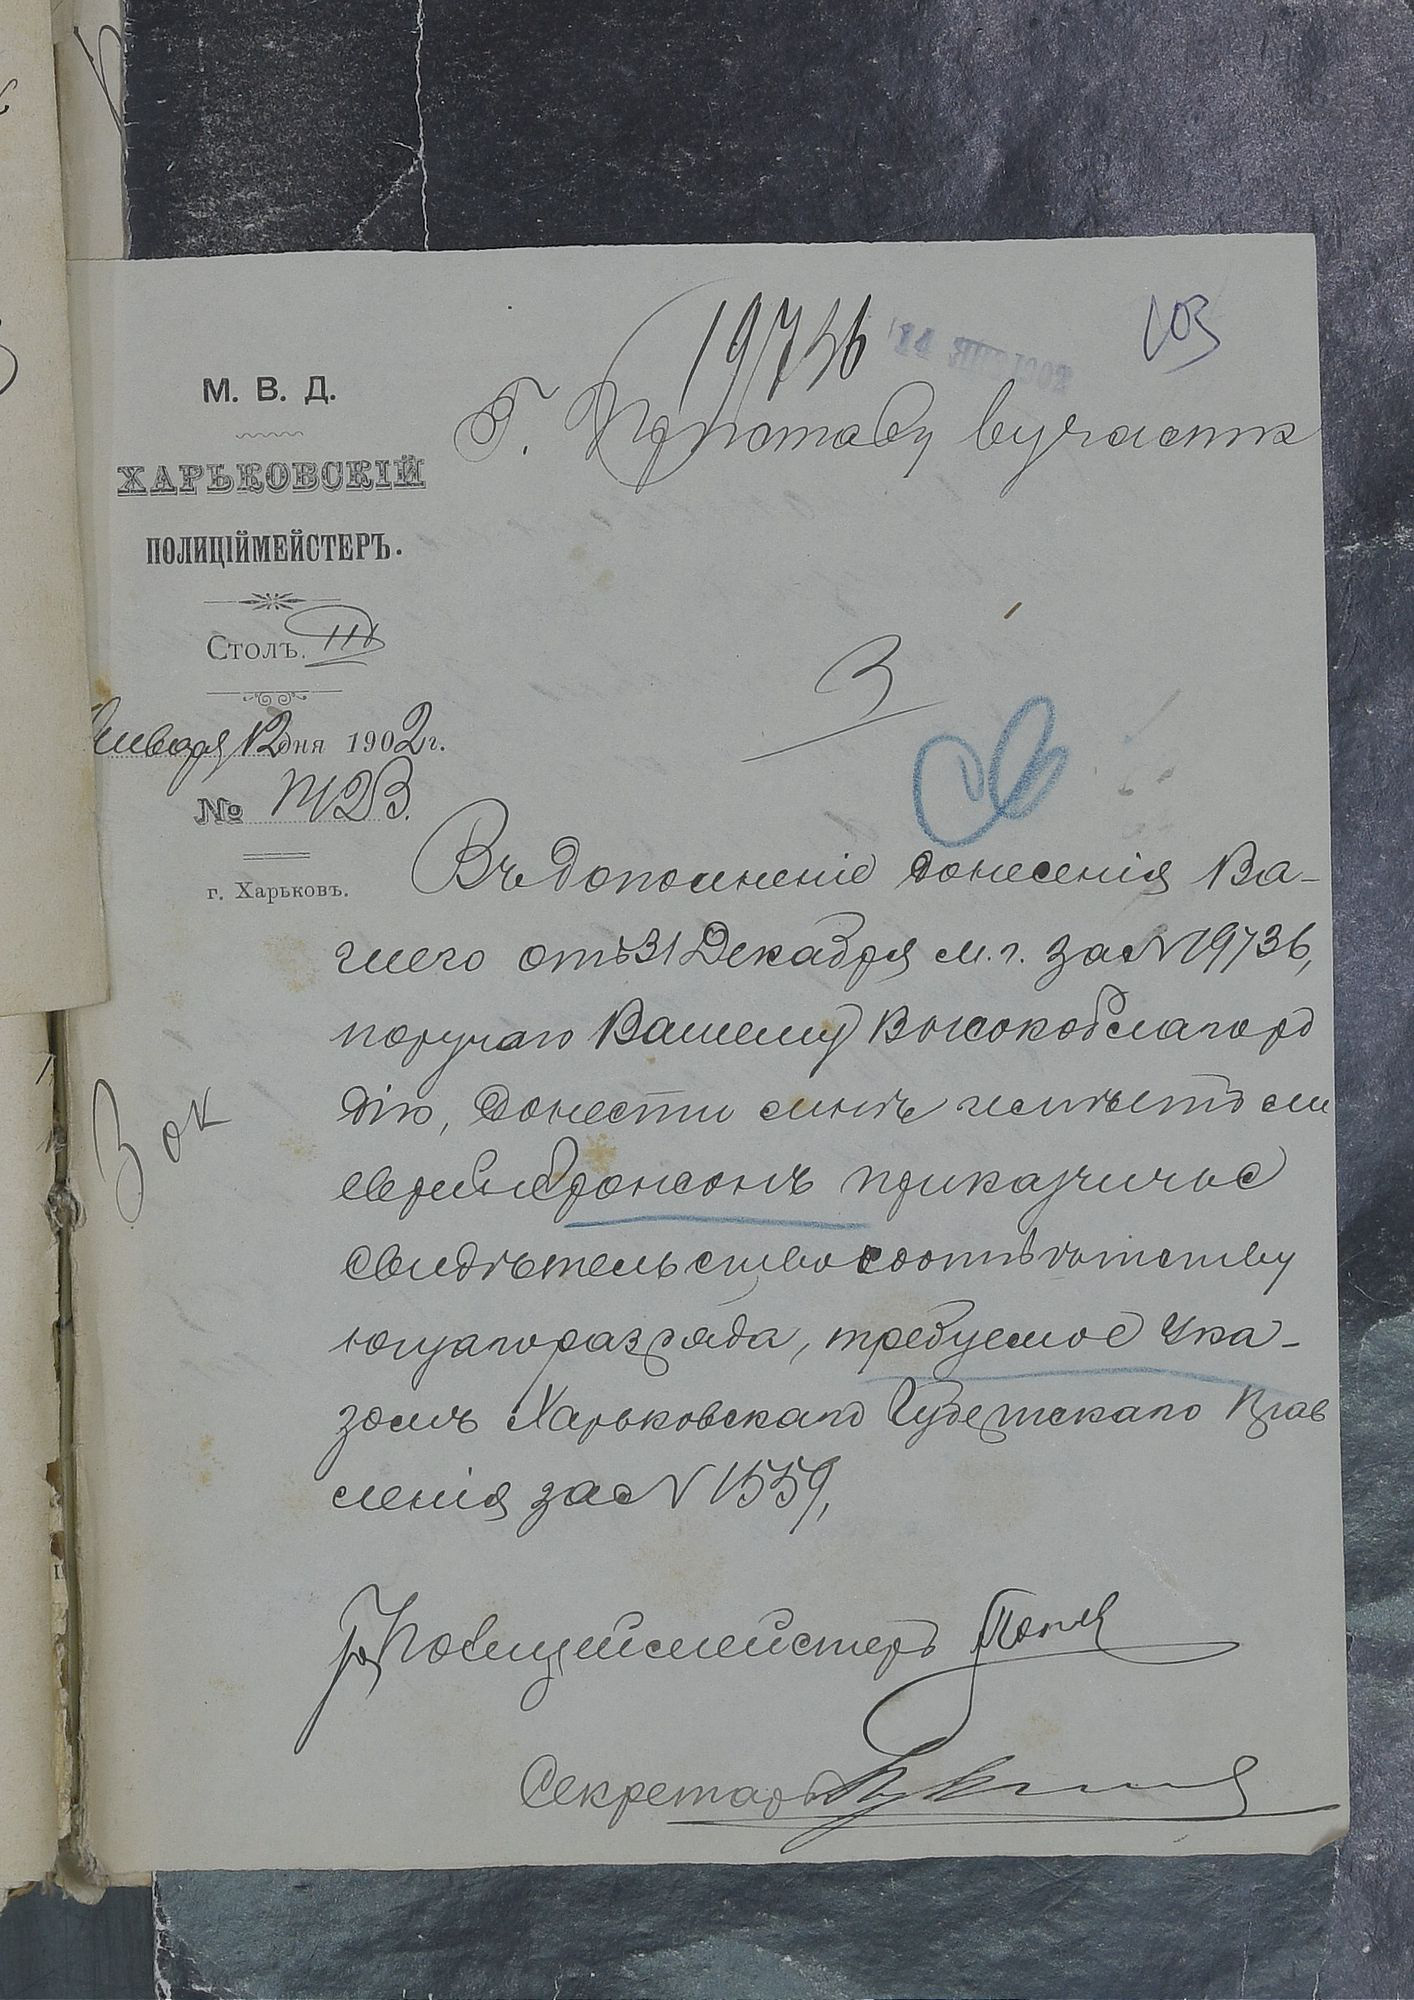 19736
14 ЯНВ 1902
103
М. В. Д.
ХАРЬКОВСКІЙ
ПОЛИЦІЙМЕЙСТЕРЪ.
Столъ. III
Января 12 дня 1902 г.
№
г. Харьковъ.
Г. Приставу 6 участк
3
Въ дополненіе донесенія Ва-
шего отъ 31 Декабря м. г. за № 19736,
поручаю Вашему Высокоблагоро
дію, донести мнѣ имѣетъ ли
еврей Аронсонъ приказчичье
свидѣтельство соотвѣтству
ющаго разряда, требуемое Ука-
зомъ Харьковскаго Губернскаго Прав
ленія за № 1559,
3 ок
Полицеймейстеръ
Секретарь